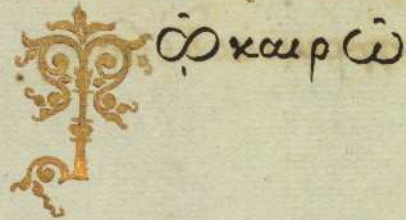 Τῷ καιρῶ